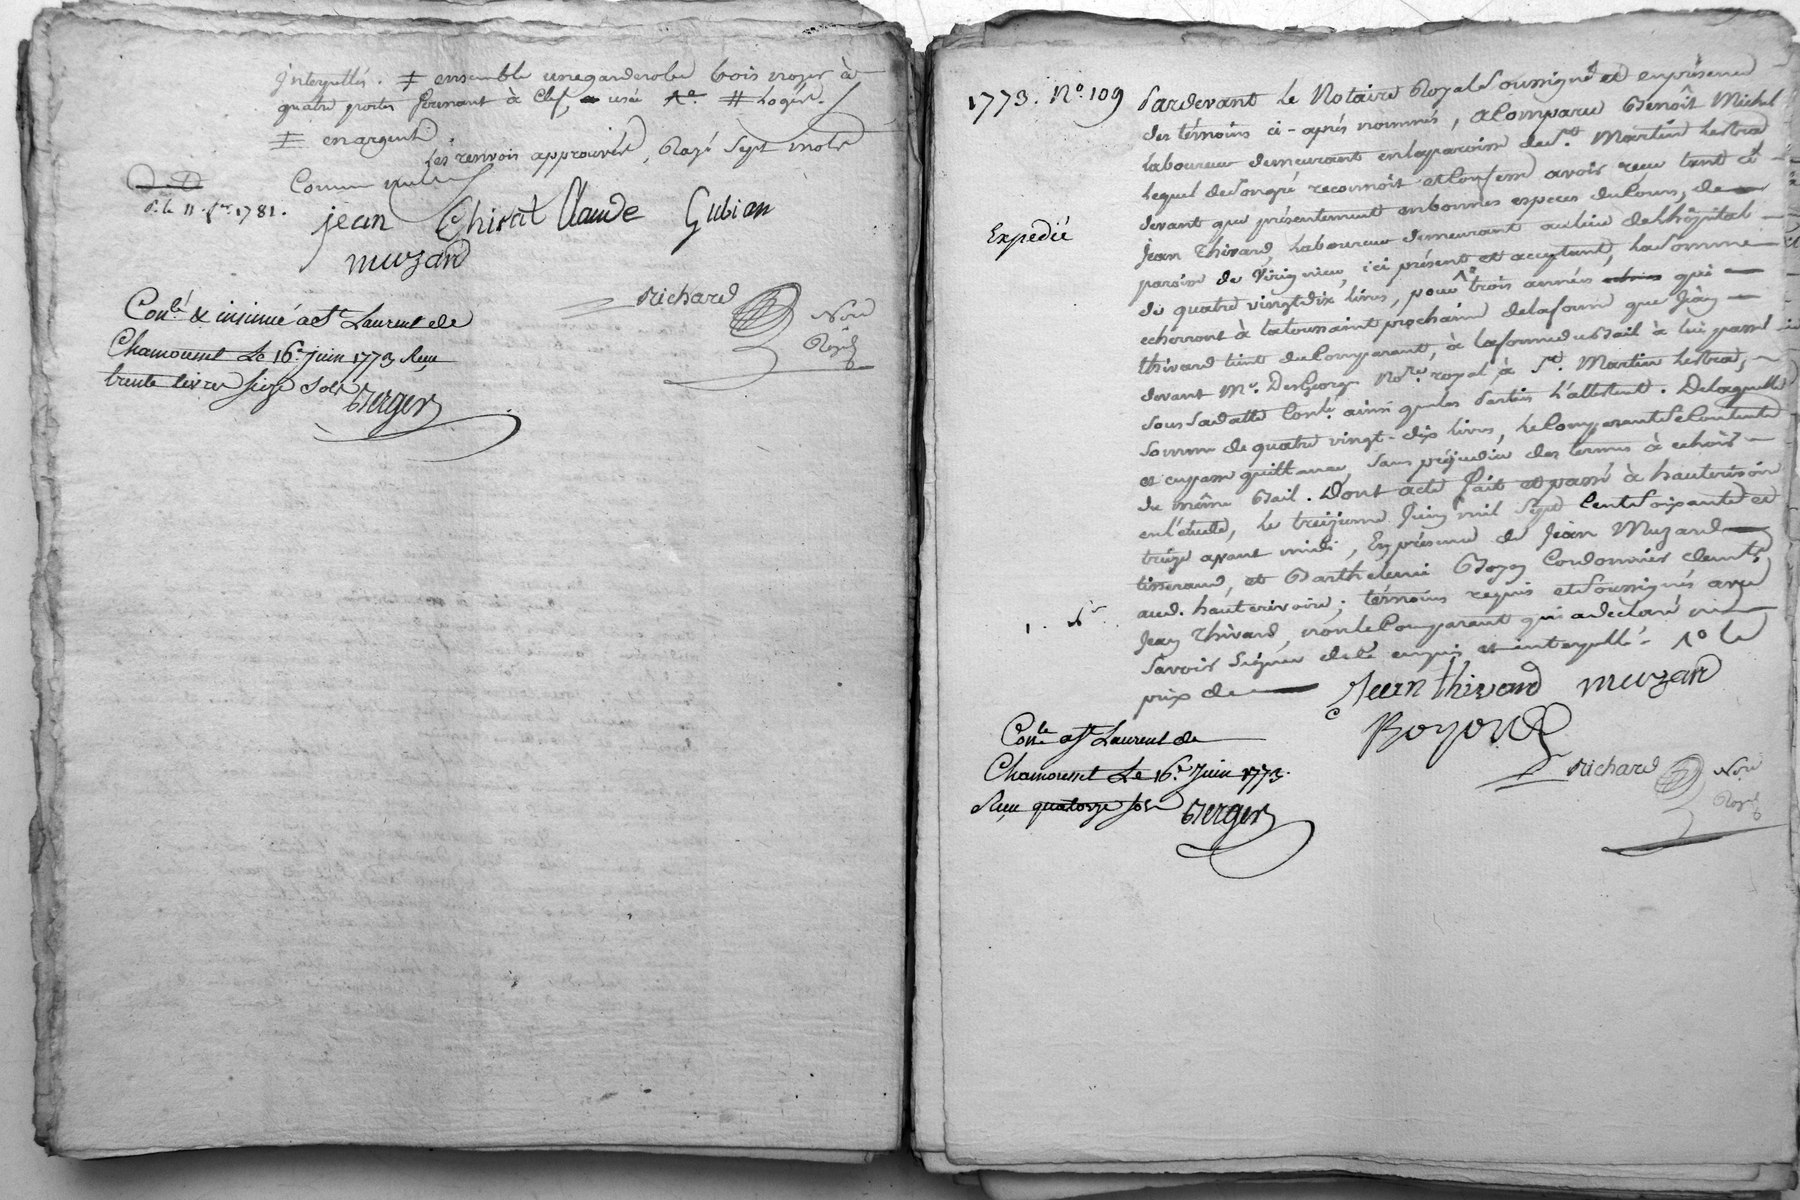 interpellés. ⧧ ensemble une garderobe bois noyer à
quatre portes fermant à clef, usée # Logés.
⧧ en argent.
Les renvois approuvés, Rayé Sept mots
Comme nuls
D. le 11. 1781.
jean Chirat Claude Gubian
muzard
richard Nore
Royal
Conlé & insinué à St Laurent de
Chamousset Le 16e juin 1773 Reçu
trente livres seize sols Berger
1773. No. 109
Expedié
Pardevant Le Notaire Royal Soussigné et en présence
des témoins ci-après nommés, a Comparu Benoît Michel
laboureur demeurant en la paroisse de St. Martin Lestra
lequel de Son gré reconnoit et Confesse avoir reçu tant ci
devant que présentement en bonnes especes du Cours, de
Jean Thivard, Laboureur demeurant au lieu de L'hôpital
paroisse de Virignieu, ici présent et acceptant, La Somme
de quatre vingt dix livres, pour trois années qui
echerront à la toussaint prochaine de la ferme que Jean
thivard tient du Comparant, à la forme du Bail à lui passé
devant Me. DesGeorge Nore. royal à St. Martin Lestra,
sous Sa datte Conlé. ainsi que les Parties L'attestent. De laquelle
Somme de quatre vingt-dix livres, Le Comparant Se Contente
et en passe quittance, Sans préjudice des termes à echoir
du même Bail. Dont acte fait et passé à hauterivoire
en l'étude, le treizieme Juin mil Sept Cent Soixante et
treize avant midi, En présence de Jean Muzard
tisserand, et Barthelemi Boyon Cordonnier demts.
aud. hauterivoire; témoins requis et Soussignés avec
Jean Thivard, non le Comparant qui a declaré ne
Savoir Signer de ce enquis et interpellé. 1º le
prix de
Jean thivard muzard
Boyon
richard Nore
Royal
Conlé à St Laurent de
Chamousset Le 16e Juin 1773.
Reçu quatorze sols Berger